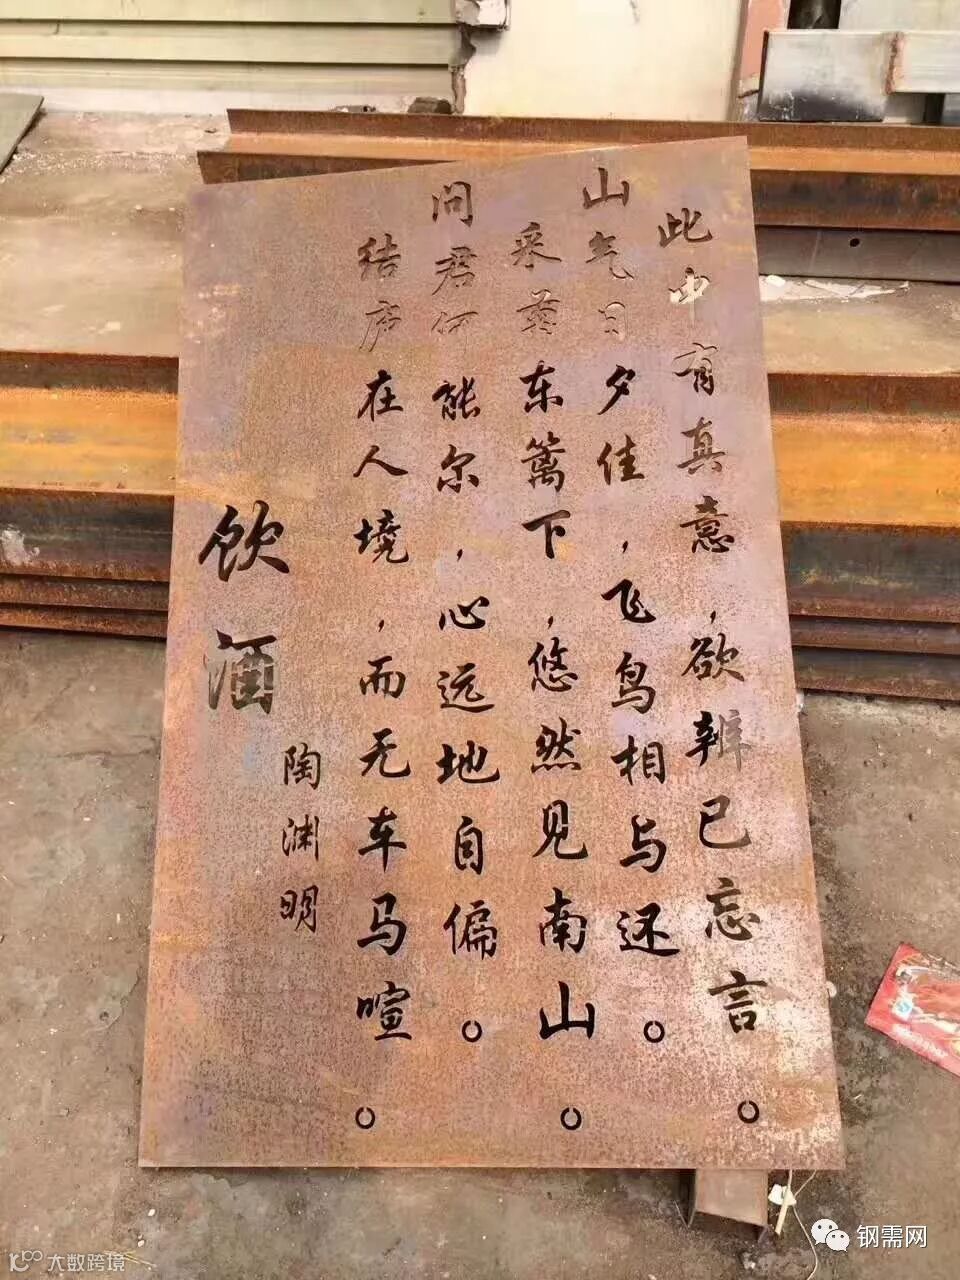 饮酒
陶渊明
结庐在人境，而无车马喧。
问君何能尔，心远地自偏。
采菊东篱下，悠然见南山。
山气日夕佳，飞鸟相与还。
此中有真意，欲辨已忘言。
钢需网
大数跨境